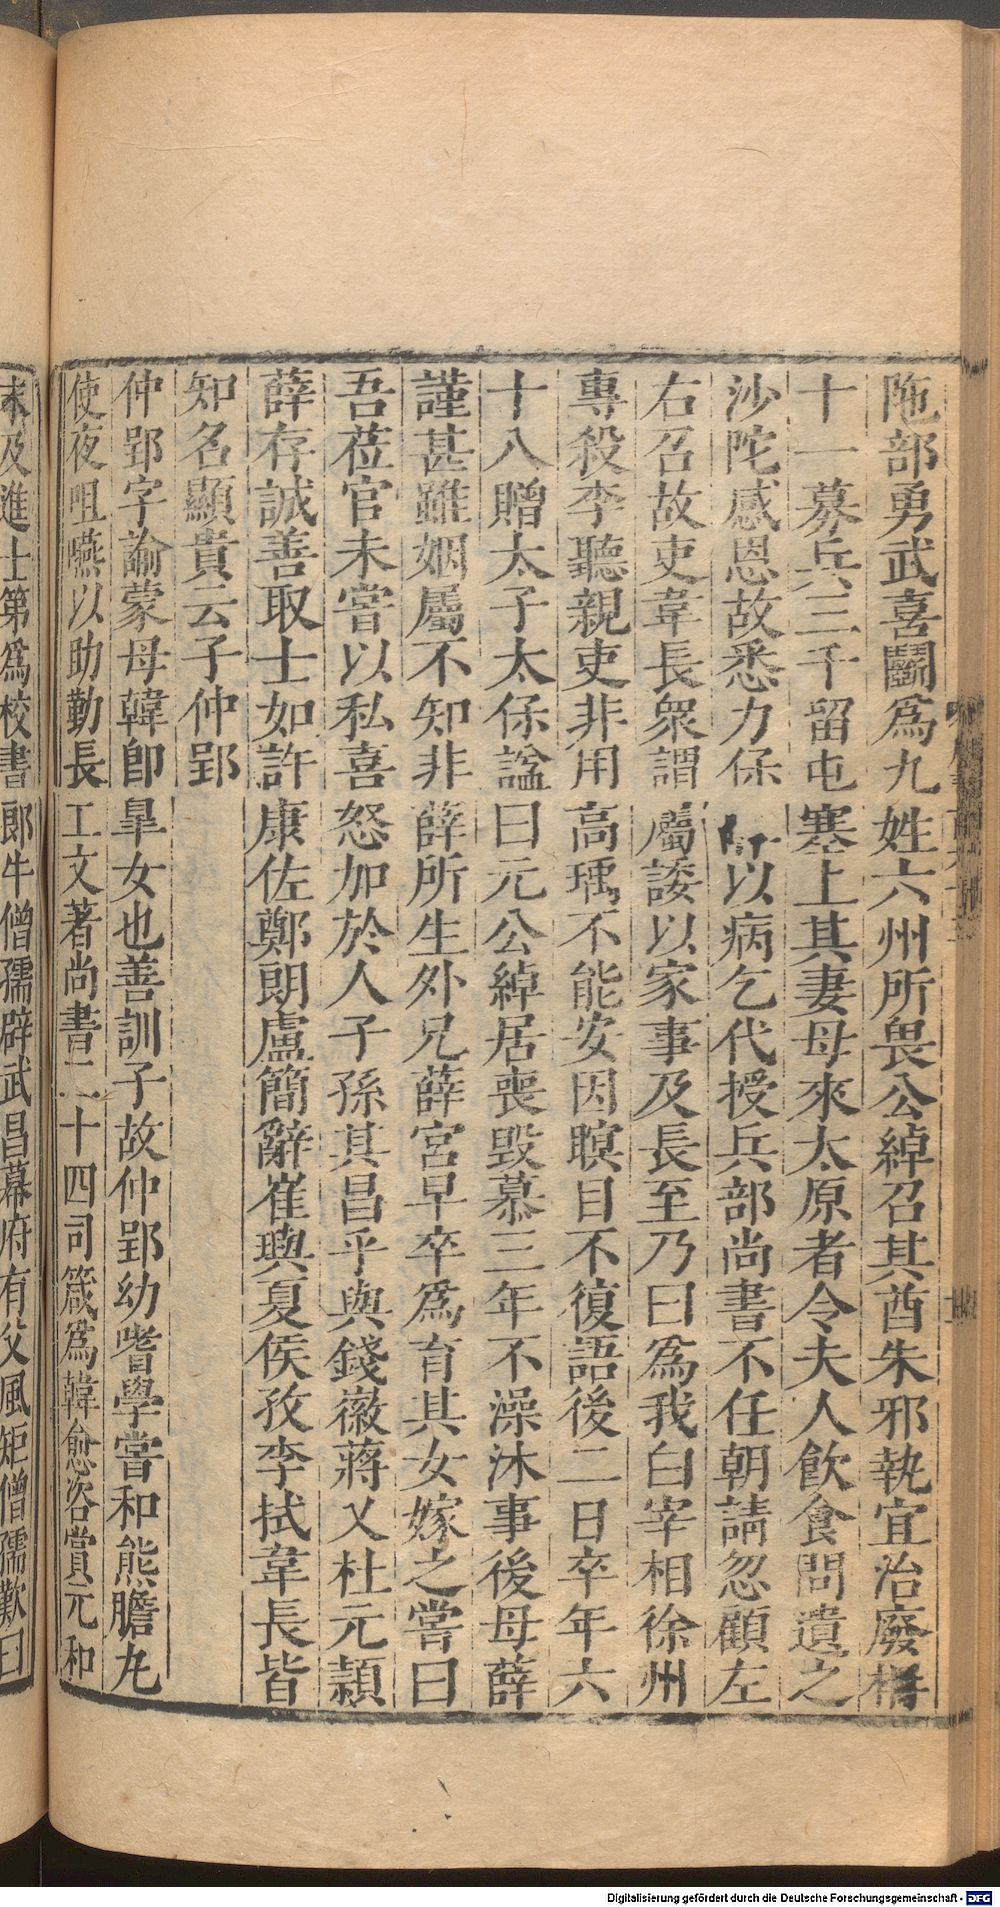 陁部勇武喜鬭爲九姓六州所畏公綽召其酋朱邪執宜治廢柵
十一募兵三千留屯塞上其妻母來太原者令夫人飲食問遺之
沙陀感恩故悉力保以病乞代授兵部尚書不任朝請忽顧左
右召故吏韋長衆謂屬諉以家事及長至乃曰爲我白宰相徐州
專殺李聽親吏非用高瑀不能安因瞑目不復語後二日卒年六
十八贈太子太保謚曰元公綽居喪毀慕三年不澡沐事後母薛
謹甚雖姻屬不知非薛所生外兄薛宮早卒爲育其女嫁之嘗曰
吾莅官未嘗以私喜怒加於人子孫其昌乎與錢徽蔣乂杜元穎
薛存誠善取士如許康佐鄭朗盧簡辭崔璵夏侯孜李拭韋長皆
知名顯貴云子仲郢
仲郢字諭蒙母韓卽臯女也善訓子故仲郢幼嗜學嘗和熊膽丸
使夜咀嚥以助勤長工文著尚書二十四司箴爲韓愈咨賞元和
末及進士第爲校書郎牛僧孺辟武昌幕府有父風矩僧孺歎曰
Digitalisierung gefördert durch die Deutsche Forschungsgemeinschaft - DFG